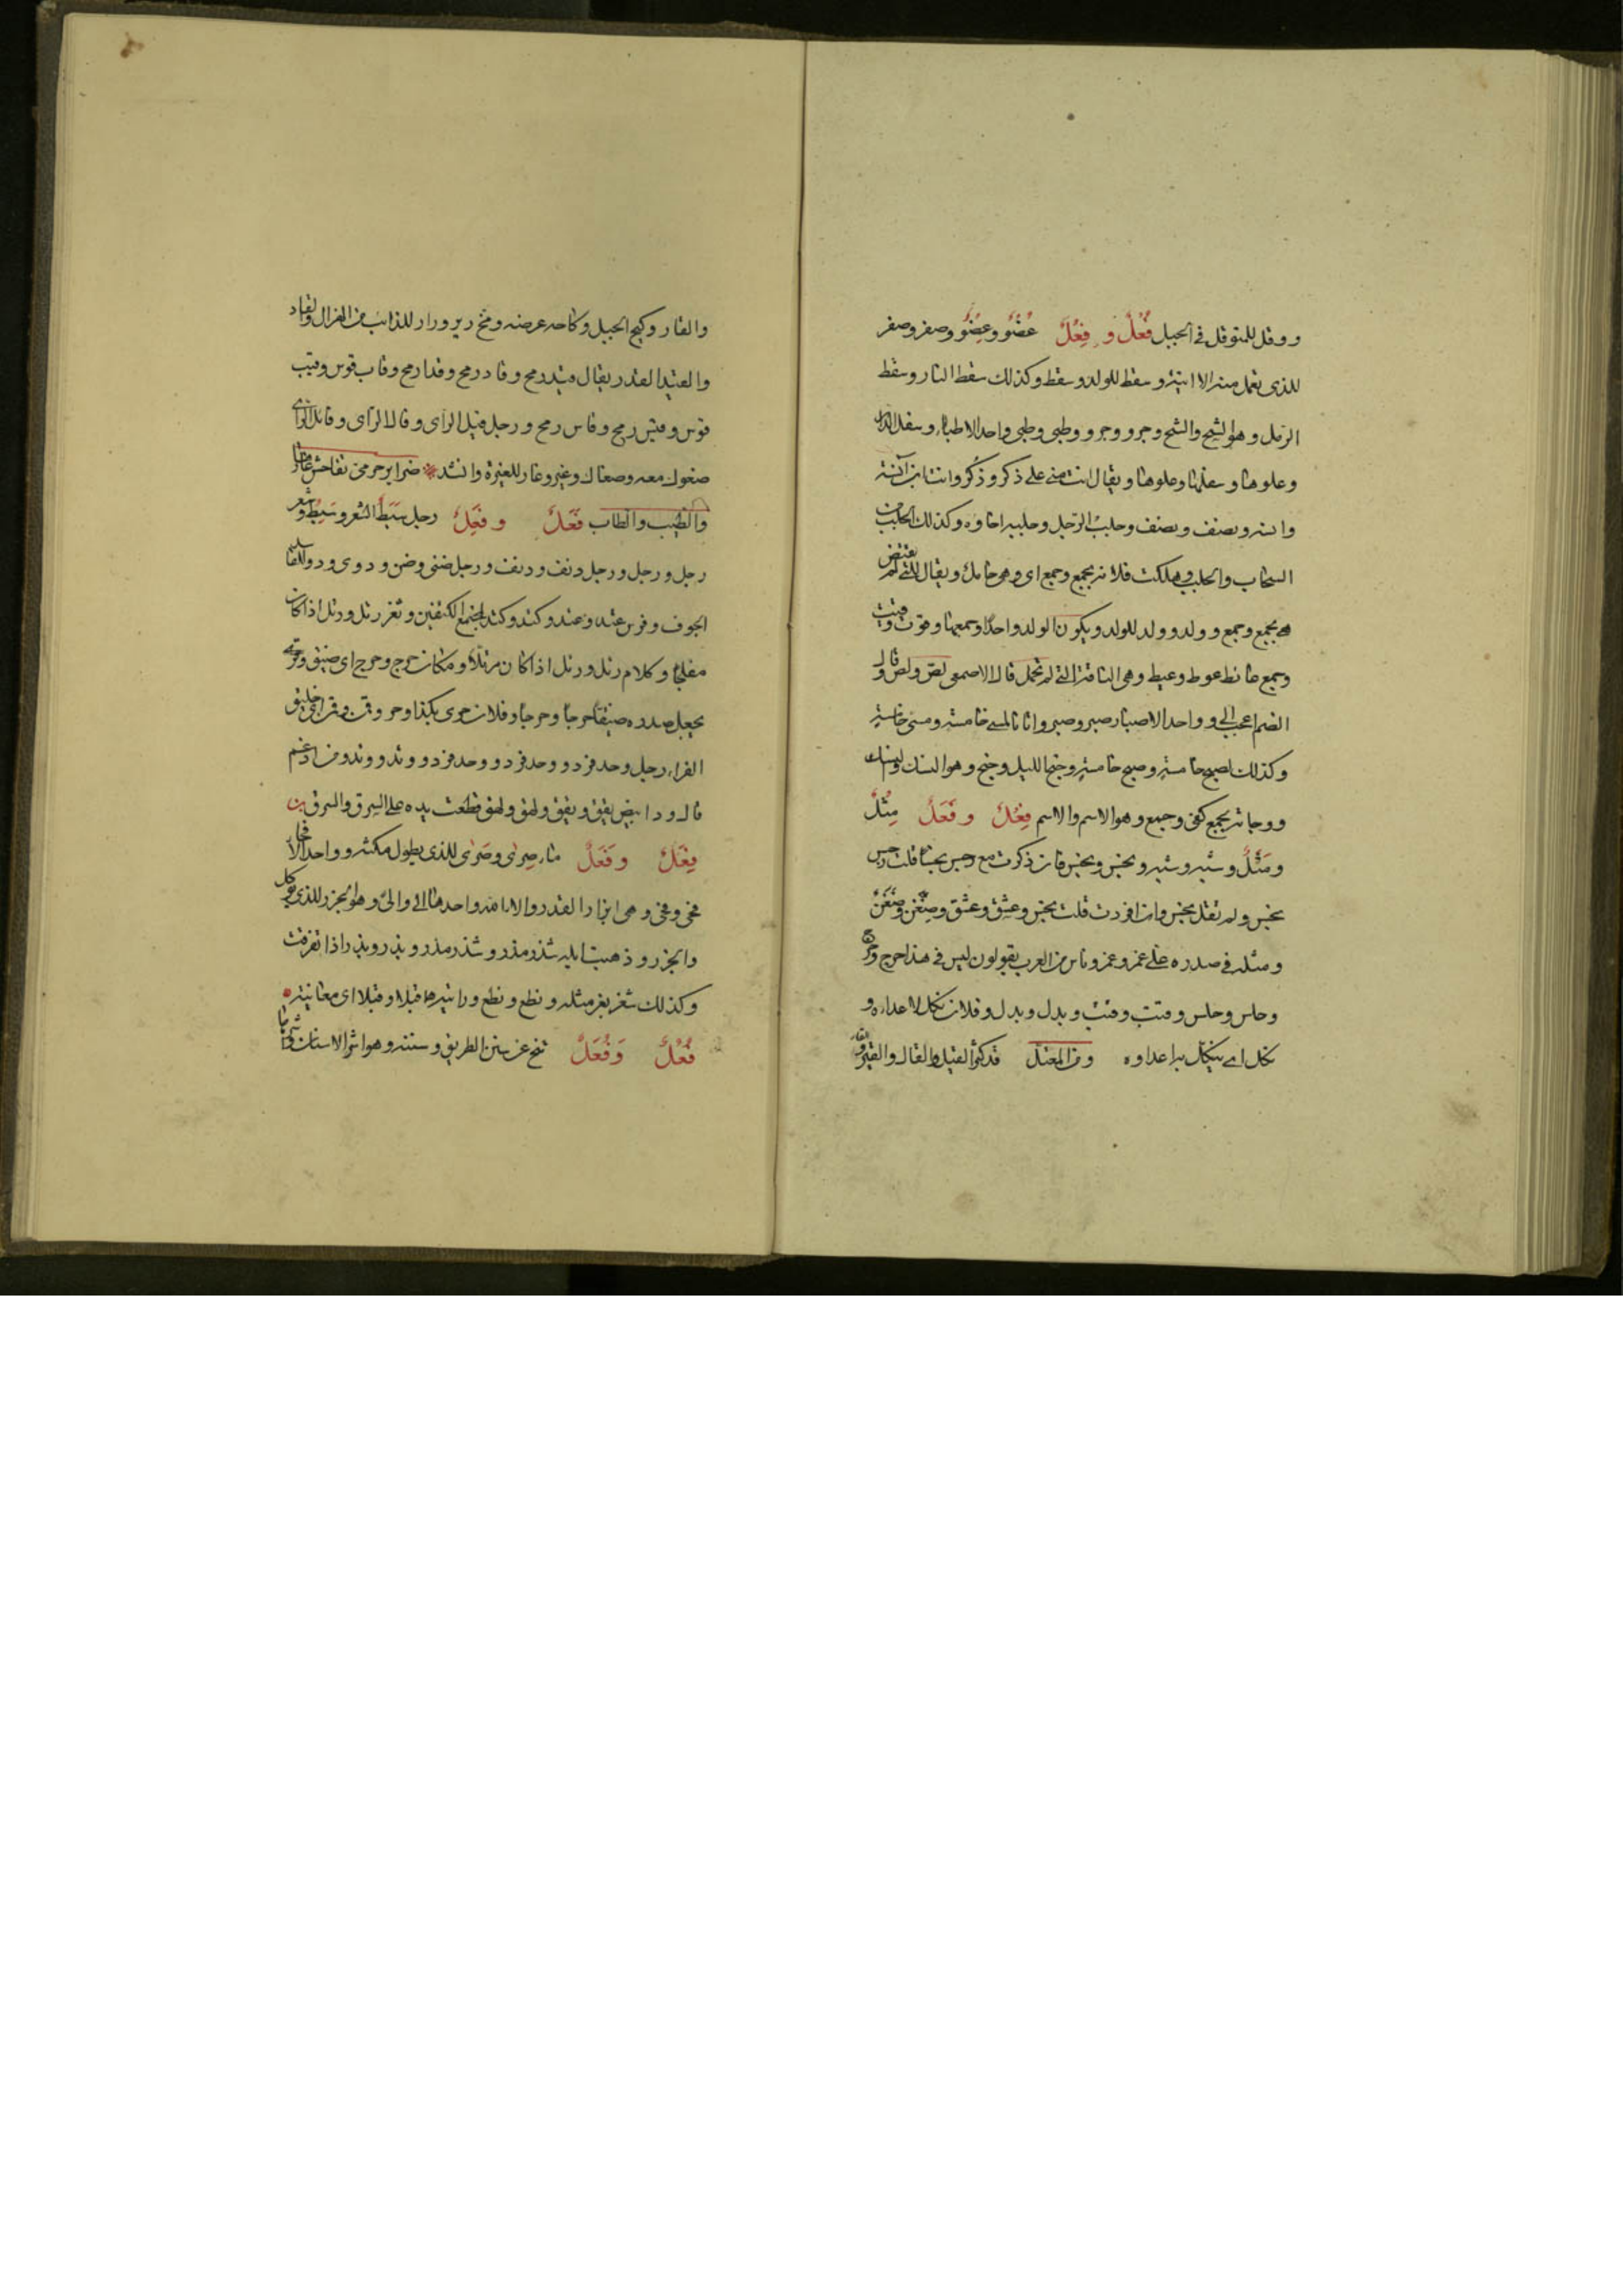 ووقل للمتوقل في الجبل فُعْلٌ و فِعْلٌ عُضْوٌ وعِضْوٌ وصفر وصفر
للذي تعمل منه الآنية وسقط للولد وسقط وكذلك سقط النار وسقط
الرمل وهو الشح والشح وجرو وجرو وطبي وطبي واحد الاطباء وسفل الدار
وعلوها وسفلها وعلوها ويقال انت مني على ذكر وذكر وانت ابن انسه
وانسه ونصف ونصف وحلب الرجل وحلبه احناوه وكذلك الجلب من
السحاب والجلب وهلكت فلانة بجمع وجمع اي وهي حامل ويقال للتي لم تفتض
هي بجمع وجمع وولد وولد للولد ويكون الولد واحدا وجمعها وقوت وقيت
وجمع عائط عوط وعيط وهي الناقة التي لم تحمل قال الاصمعي لص ولص وقال
الضم اعجب الي وواحد الاصبار صبر وصبر واتانا لمسي خامسة ومسي خامسة
وكذلك لصبح خامسة وصبح خامسة وجنح الليل وجنح وهو النسك والنسك
ووجاته بجمع كفي وجمع وهو الاسم والاسم فِعْلٌ و فَعَلٌ مِثْلٌ
ومَثَلٌ وشبه وشبه ونجس ونجس فان ذكرت مع رجس نجسا قلت رجس
نجس ولم تقل نجس وان افردت قلت نجس وعشق وعشق وضِغْن وضَغَن
ومثله في صدره علي غمر وغمر وناس من العرب يقولون ليس في هذا حرج وحرج
وحلس وحلس وقتب وقتب وبدل وبدل وفلان نكل لاعداءه و
نكل اي ينكل به اعداوه ومن المعتل قد كثر القيل والقال والقير والقار
والقار وكيح الجبل وكاحه عرضه ومخ رير ورار للذائب من الهزال والقاد
والقيد القدر يقال قيد رمح وقاد رمح وقدا رمح وقاب قوس وقيب
قوس وقيس رمح وقاس رمح ورجل فيل الراي وفال الراي وفائل الراي
صغوك معه وصغاك وغير وغار للغيرة وانشد ضراير حرمي تفاحش غارها
والطيب والطاب فَعَلٌ و فَعِلٌ رجل سَبَطُ الشعر وسَبِطٌ وشعر
رجل ورجل ورجل دنف ودنف ورجل ضنى وضن ودوى ودو للفاسد
الجوف وفرس عتد وعتد وكتد وكتد لمجتمع الكتفين وثغر رتل ورتل اذا كان
مفلجا وكلام رتل ورتل اذا كان مرتلا ومكان حرج وحرج اي ضيق وقرئ
يجعل صدره ضيقا حرجا وحرجا وفلان حرى بكذا وحر وقمن وقمن اي خليق
الفراء رجل وحد فرد ووحد فرد ووحد فرد ووتد ووتد ومن ادغم
قال ود ابيض يقق ويقق ولهق ولهق قطعت يده على السرق والسرق
فِعَلٌ و فَعَلٌ ماء صِرًى وصَرًى للذي يطول مكثه وواحد الافحا
فحى وفحى وهي ابزار القدر والالاء واحدها الى والى وهو الجزر للذي يوكل
والجزر وذهبت ابله شذر مذر وشذر مذر وبذر وبذر اذا تفرقت
وكذلك شغر بغر مثله ونطع ونطع ورايته قبلا وقبلا اي معاينة
فُعُلٌ وَفُعَلٌ تنح عن سنن الطريق وسننه وهو